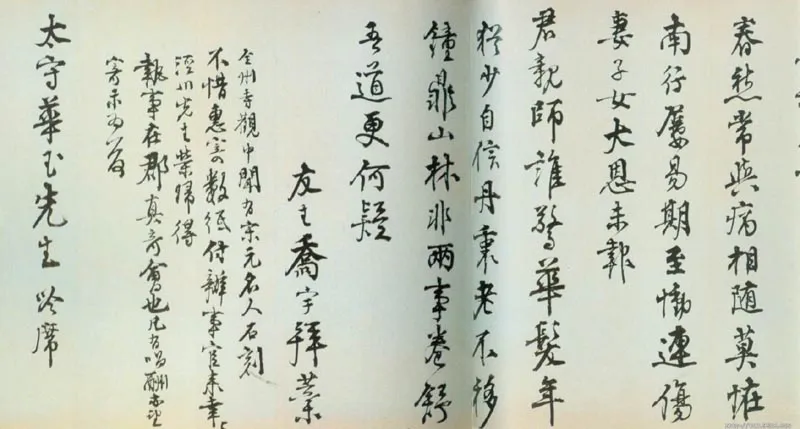 春愁常與病相随莫怪
南行屢易期至慟連傷
妻子女大恩未報
君親師誰驚華髮年
猶少自信丹衷老不移
鐘鼎山林非兩事卷舒
吾道更何疑
友生喬宇拜稾
全州寺觀中聞有宋元名人石刻
不惜惠寄數紙付辦事官来幸〻
涇川先生榮歸得
執事在郡真奇會也凡有唱酬亦望
寄示為
太守華玉先生 吟席